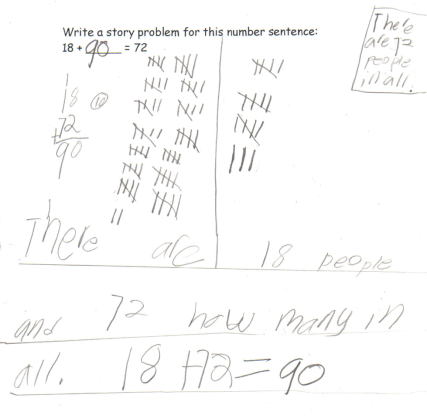 Write a story problem for this number sentence:
18 + 90 = 72
There
are 72
people
in all.
1
18 10
+72
90
1
There are 18 people
and 72 how many in
all. 18 +72=90